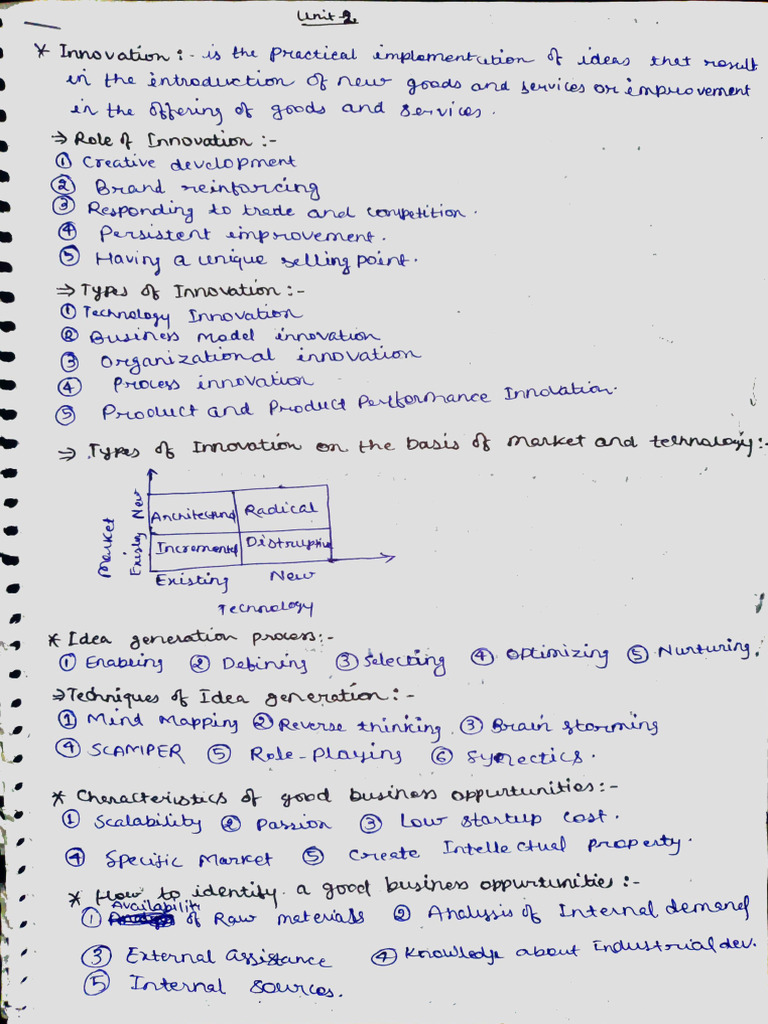 Unit-2
* Innovation :- is the practical implementation of ideas that result
in the introduction of new goods and services or improvement
in the offering of goods and services.
⇒ Role of Innovation :-
① Creative development
② Brand reinforcing
③ Responding to trade and competition.
④ Persistent improvement.
⑤ Having a unique selling point.
⇒ Types of Innovation :-
① Technology Innovation
② Business model innovation
③ Organizational innovation
④ Process innovation
⑤ Product and Product Performance Innovation.
⇒ Types of Innovation on the basis of market and technology :-
Market
Existing New
Architectural Radical
Incremental Distruptive
Existing New
Technology
* Idea generation process :-
① Enabling ② Defining ③ Selecting ④ Optimizing ⑤ Nurturing.
⇒ Techniques of Idea generation :-
① Mind Mapping ② Reverse thinking ③ Brain storming
④ SCAMPER ⑤ Role-Playing ⑥ Synectics.
* Characteristics of good business oppurtunities :-
① Scalability ② Passion ③ Low startup cost.
④ Specific Market ⑤ Create Intellectual property.
* How to identify a good business oppurtunities :-
① Availability of Raw materials ② Analysis of Internal demand
③ External Assistance ④ Knowledge about Industrial dev.
⑤ Internal sources.